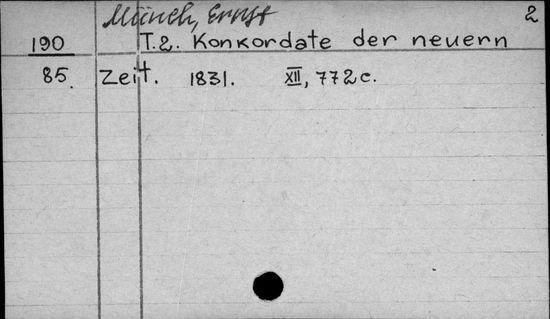 Münch, Ernst 2
190 T.2. Konkordate der neuern
85. Zeit. 1831. XII, 772 c.